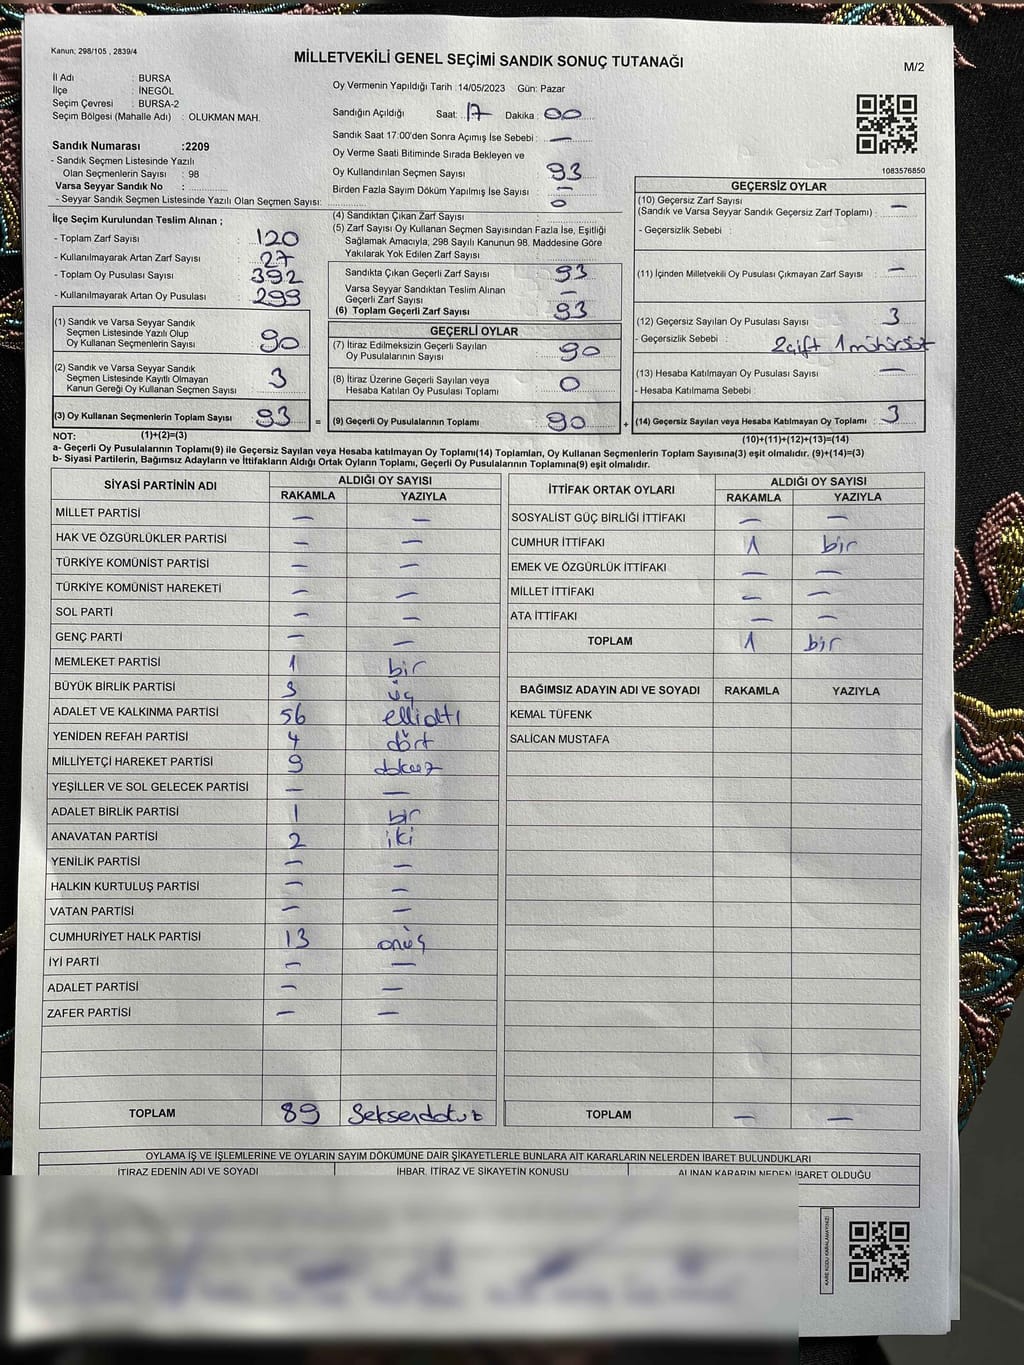 Kanun; 298/105 , 2839/4
MİLLETVEKİLİ GENEL SEÇİMİ SANDIK SONUÇ TUTANAĞI
M/2
İl Adı : BURSA
İlçe : İNEGÖL
Seçim Çevresi : BURSA-2
Seçim Bölgesi (Mahalle Adı) : OLUKMAN MAH.
Sandık Numarası :2209
- Sandık Seçmen Listesinde Yazılı
Olan Seçmenlerin Sayısı : 98
Varsa Seyyar Sandık No :
- Seyyar Sandık Seçmen Listesinde Yazılı Olan Seçmen Sayısı:
Oy Vermenin Yapıldığı Tarih :14/05/2023 Gün: Pazar
Sandığın Açıldığı Saat: 17 Dakika : 00
Sandık Saat 17:00'den Sonra Açımış İse Sebebi : —
Oy Verme Saati Bitiminde Sırada Bekleyen ve
Oy Kullandırılan Seçmen Sayısı 93
Birden Fazla Sayım Döküm Yapılmış İse Sayısı : —
1083576850
İlçe Seçim Kurulundan Teslim Alınan ;
- Toplam Zarf Sayısı : 120
- Kullanılmayarak Artan Zarf Sayısı : 27
- Toplam Oy Pusulası Sayısı : 392
- Kullanılmayarak Artan Oy Pusulası : 299
(1) Sandık ve Varsa Seyyar Sandık
Seçmen Listesinde Yazılı Olup
Oy Kullanan Seçmenlerin Sayısı : 90
(2) Sandık ve Varsa Seyyar Sandık
Seçmen Listesinde Kayıtlı Olmayan
Kanun Gereği Oy Kullanan Seçmen Sayısı : 3
(3) Oy Kullanan Seçmenlerin Toplam Sayısı : 93
0
(4) Sandıktan Çıkan Zarf Sayısı :
(5) Zarf Sayısı Oy Kullanan Seçmen Sayısından Fazla İse, Eşitliği
Sağlamak Amacıyla; 298 Sayılı Kanunun 98. Maddesine Göre
Yakılarak Yok Edilen Zarf Sayısı :
Sandıkta Çıkan Geçerli Zarf Sayısı : 93
Varsa Seyyar Sandıktan Teslim Alınan
Geçerli Zarf Sayısı : —
(6) Toplam Geçerli Zarf Sayısı : 93
GEÇERLİ OYLAR
(7) İtiraz Edilmeksizin Geçerli Sayılan
Oy Pusulalarının Sayısı : 90
(8) İtiraz Üzerine Geçerli Sayılan veya
Hesaba Katılan Oy Pusulası Toplamı : 0
= (9) Geçerli Oy Pusulalarının Toplamı : 90
GEÇERSİZ OYLAR
(10) Geçersiz Zarf Sayısı
(Sandık ve Varsa Seyyar Sandık Geçersiz Zarf Toplamı) : —
- Geçersizlik Sebebi :
(11) İçinden Milletvekili Oy Pusulası Çıkmayan Zarf Sayısı : —
(12) Geçersiz Sayılan Oy Pusulası Sayısı : 3
- Geçersizlik Sebebi : 2 çift 1 mühürsüt
(13) Hesaba Katılmayan Oy Pusulası Sayısı : —
- Hesaba Katılmama Sebebi :
+ (14) Geçersiz Sayılan veya Hesaba Katılmayan Oy Toplamı : 3
NOT: (1)+(2)=(3)
(10)+(11)+(12)+(13)=(14)
a- Geçerli Oy Pusulalarının Toplamı(9) ile Geçersiz Sayılan veya Hesaba katılmayan Oy Toplamı(14) Toplamları, Oy Kullanan Seçmenlerin Toplam Sayısına(3) eşit olmalıdır. (9)+(14)=(3)
b- Siyasi Partilerin, Bağımsız Adayların ve İttifakların Aldığı Ortak Oyların Toplamı, Geçerli Oy Pusulalarının Toplamına(9) eşit olmalıdır.
SİYASİ PARTİNİN ADI
ALDIĞI OY SAYISI
RAKAMLA YAZIYLA
MİLLET PARTİSİ — —
HAK VE ÖZGÜRLÜKLER PARTİSİ — —
TÜRKİYE KOMÜNİST PARTİSİ — —
TÜRKİYE KOMÜNİST HAREKETİ — —
SOL PARTİ — —
GENÇ PARTİ — —
MEMLEKET PARTİSİ 1 bir
BÜYÜK BİRLİK PARTİSİ 3 üç
ADALET VE KALKINMA PARTİSİ 56 elli altı
YENİDEN REFAH PARTİSİ 4 dört
MİLLİYETÇİ HAREKET PARTİSİ 9 dokuz
YEŞİLLER VE SOL GELECEK PARTİSİ — —
ADALET BİRLİK PARTİSİ 1 bir
ANAVATAN PARTİSİ 2 iki
YENİLİK PARTİSİ — —
HALKIN KURTULUŞ PARTİSİ — —
VATAN PARTİSİ — —
CUMHURİYET HALK PARTİSİ 13 onüç
İYİ PARTİ — —
ADALET PARTİSİ — —
ZAFER PARTİSİ — —
TOPLAM 89 Seksendokuz
İTTİFAK ORTAK OYLARI
ALDIĞI OY SAYISI
RAKAMLA YAZIYLA
SOSYALİST GÜÇ BİRLİĞİ İTTİFAKI — —
CUMHUR İTTİFAKI 1 bir
EMEK VE ÖZGÜRLÜK İTTİFAKI — —
MİLLET İTTİFAKI — —
ATA İTTİFAKI — —
TOPLAM 1 bir
BAĞIMSIZ ADAYIN ADI VE SOYADI RAKAMLA YAZIYLA
KEMAL TÜFENK
SALİCAN MUSTAFA
TOPLAM — —
OYLAMA İŞ VE İŞLEMLERİNE VE OYLARIN SAYIM DÖKÜMÜNE DAİR ŞİKAYETLERLE BUNLARA AİT KARARLARIN NELERDEN İBARET BULUNDUKLARI
İTİRAZ EDENİN ADI VE SOYADI
İHBAR, İTİRAZ VE ŞİKAYETİN KONUSU
ALINAN KARARIN NEDEN İBARET OLDUĞU
KARE KODU KARALAMAYINIZ!